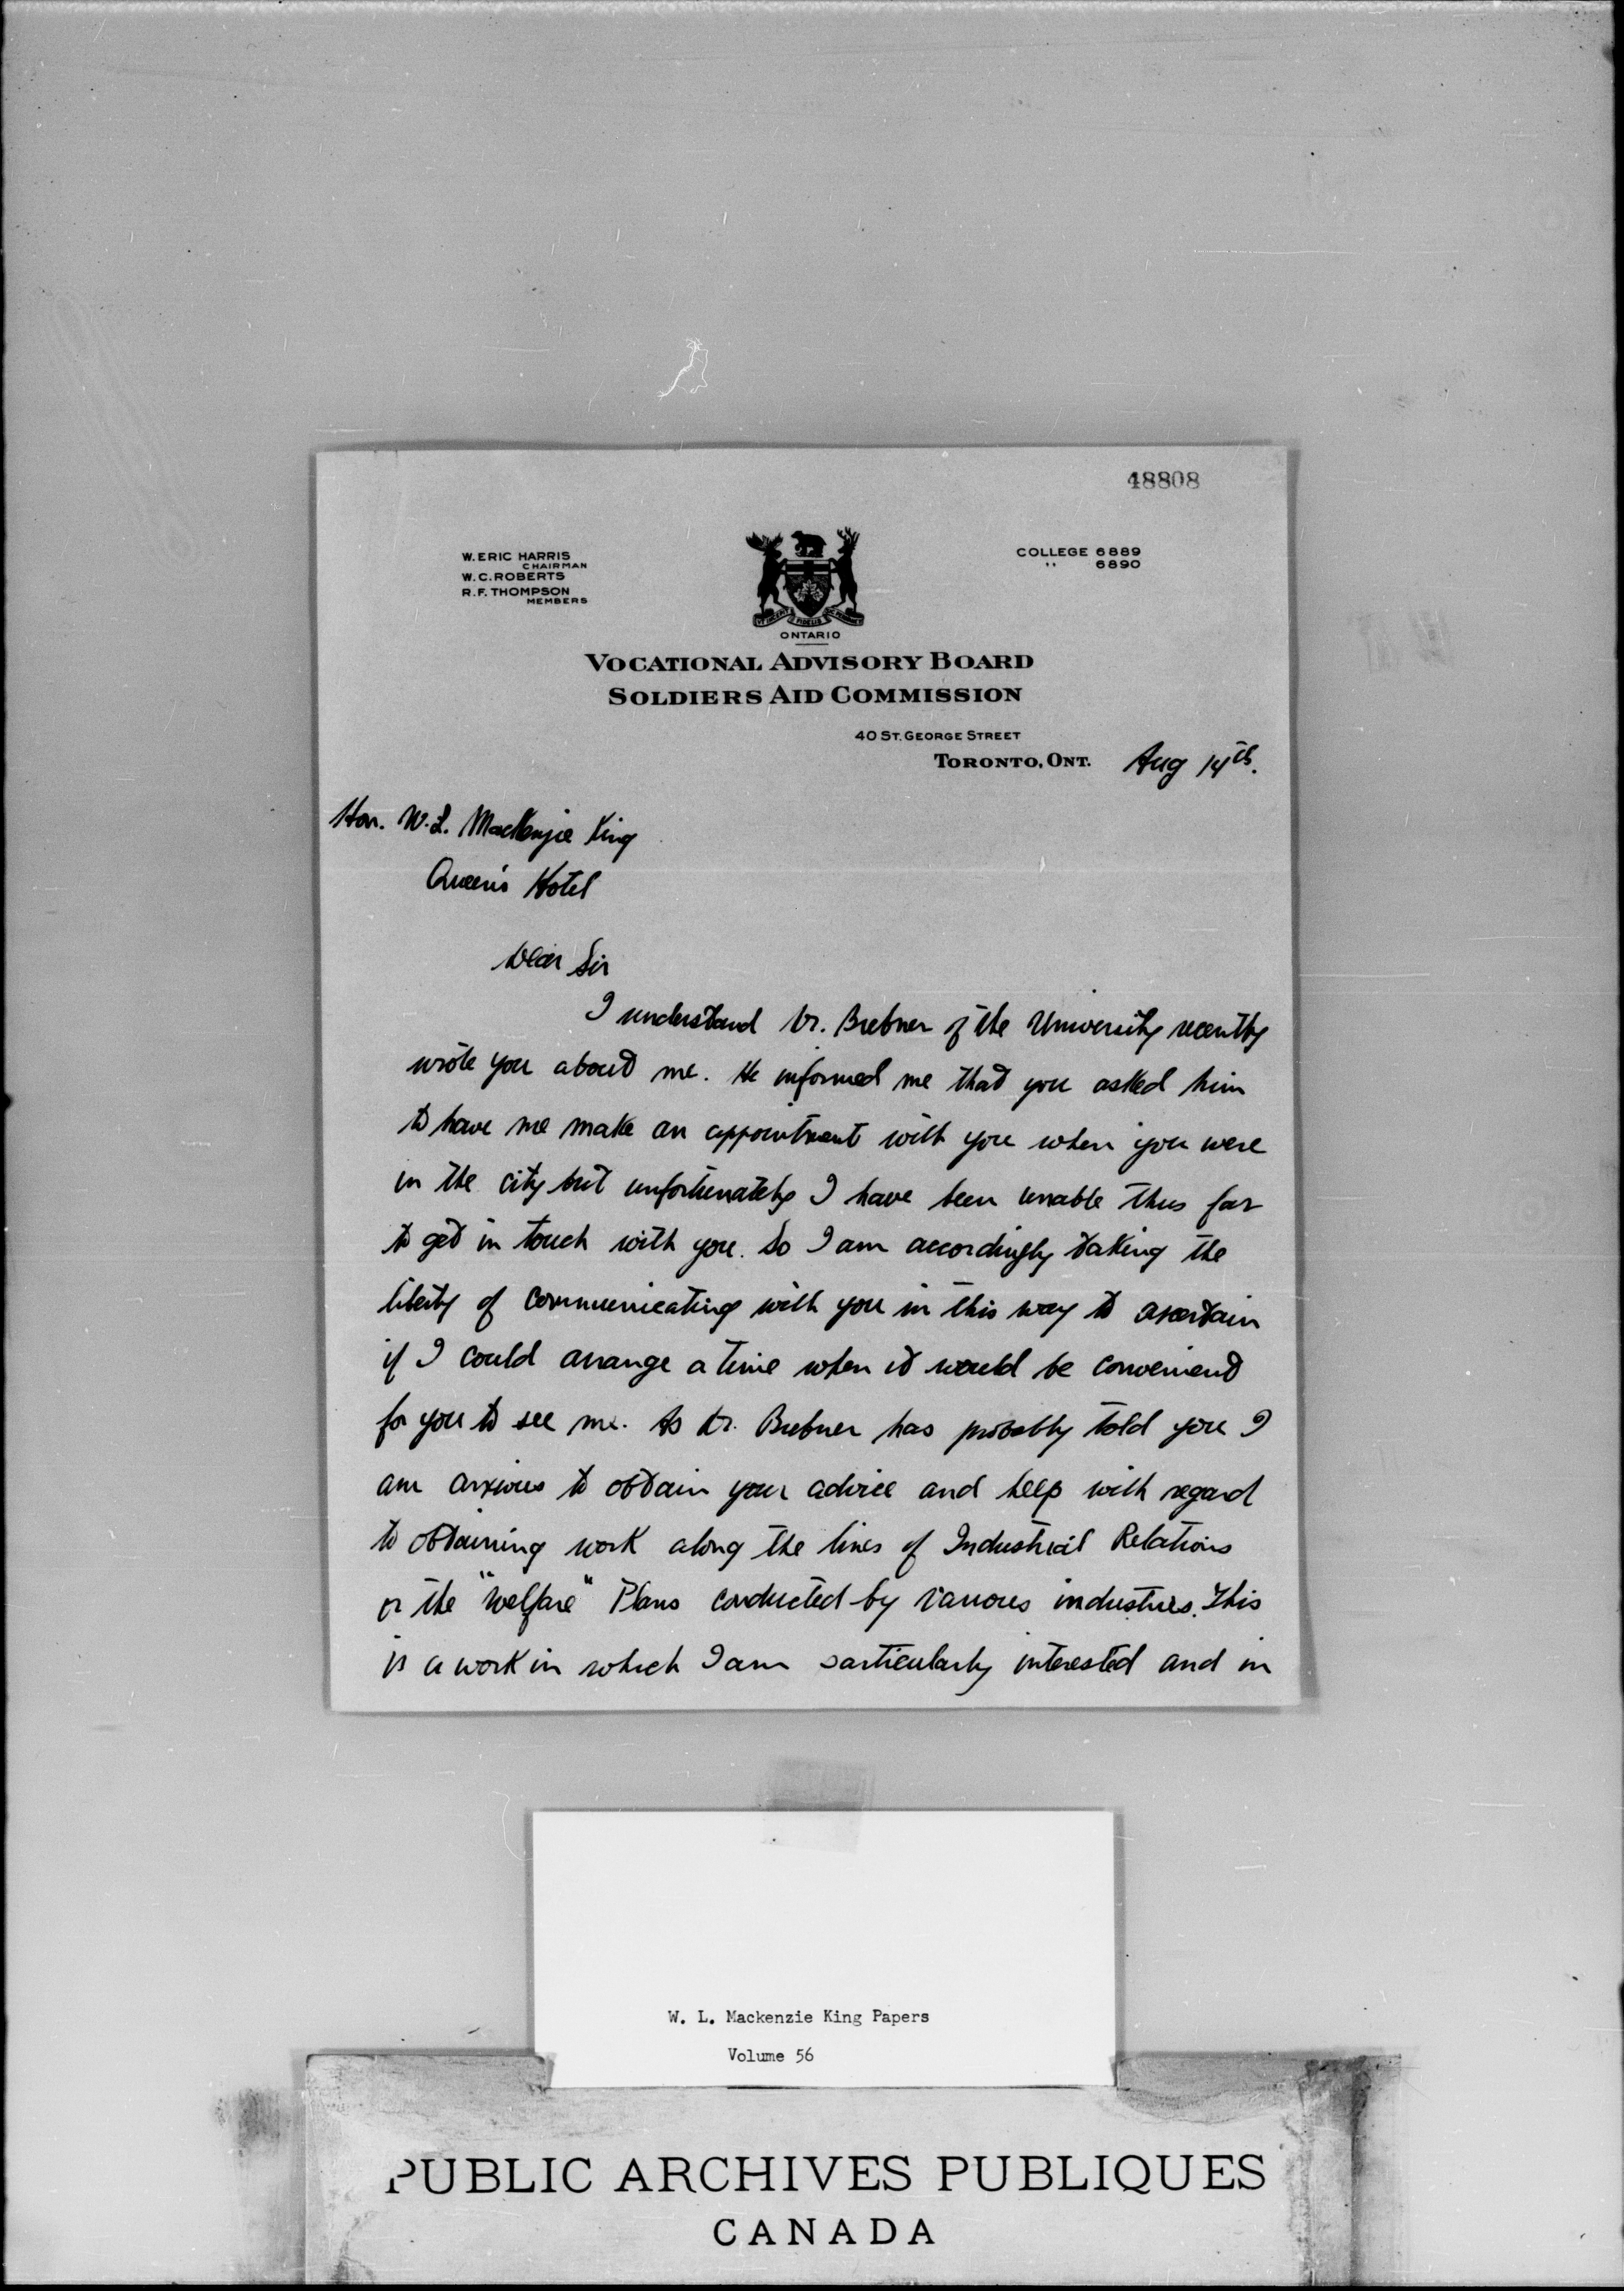 48808
W. ERIC HARRIS
CHAIRMAN
W. C. ROBERTS
R. F. THOMPSON
MEMBERS
COLLEGE 6889
" 6890
ONTARIO
VOCATIONAL ADVISORY BOARD
SOLDIERS AID COMMISSION
40 ST. GEORGE STREET
TORONTO, ONT. Aug 14th.
Hon. W. L. MacKenzie King
Queen's Hotel
Dear Sir
I understand Dr. Brebner of the University recently
wrote you about me. He informed me that you asked him
to have me make an appointment with you when you were
in the city but unfortunately I have been unable thus far
to get in touch with you. So I am accordingly taking the
liberty of communicating with you in this way to ascertain
if I could arrange a time when it would be convenient
for you to see me. As Dr. Brebner has probably told you I
am anxious to obtain your advice and help with regard
to obtaining work along the lines of Industrial Relations
or the "Welfare" Plans conducted by various industries. This
is a work in which I am particularly interested and in
W. L. Mackenzie King Papers
Volume 56
PUBLIC ARCHIVES PUBLIQUES
CANADA